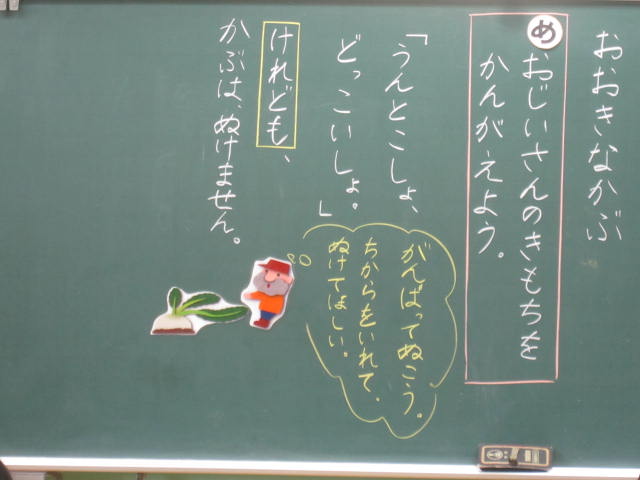 おおきなかぶ
め
おじいさんのきもちを
かんがえよう。
「うんとこしょ、
どっこいしょ。」
がんばってぬこう。
ちからをいれて、
ぬけてほしい。
けれども、
かぶは、ぬけません。